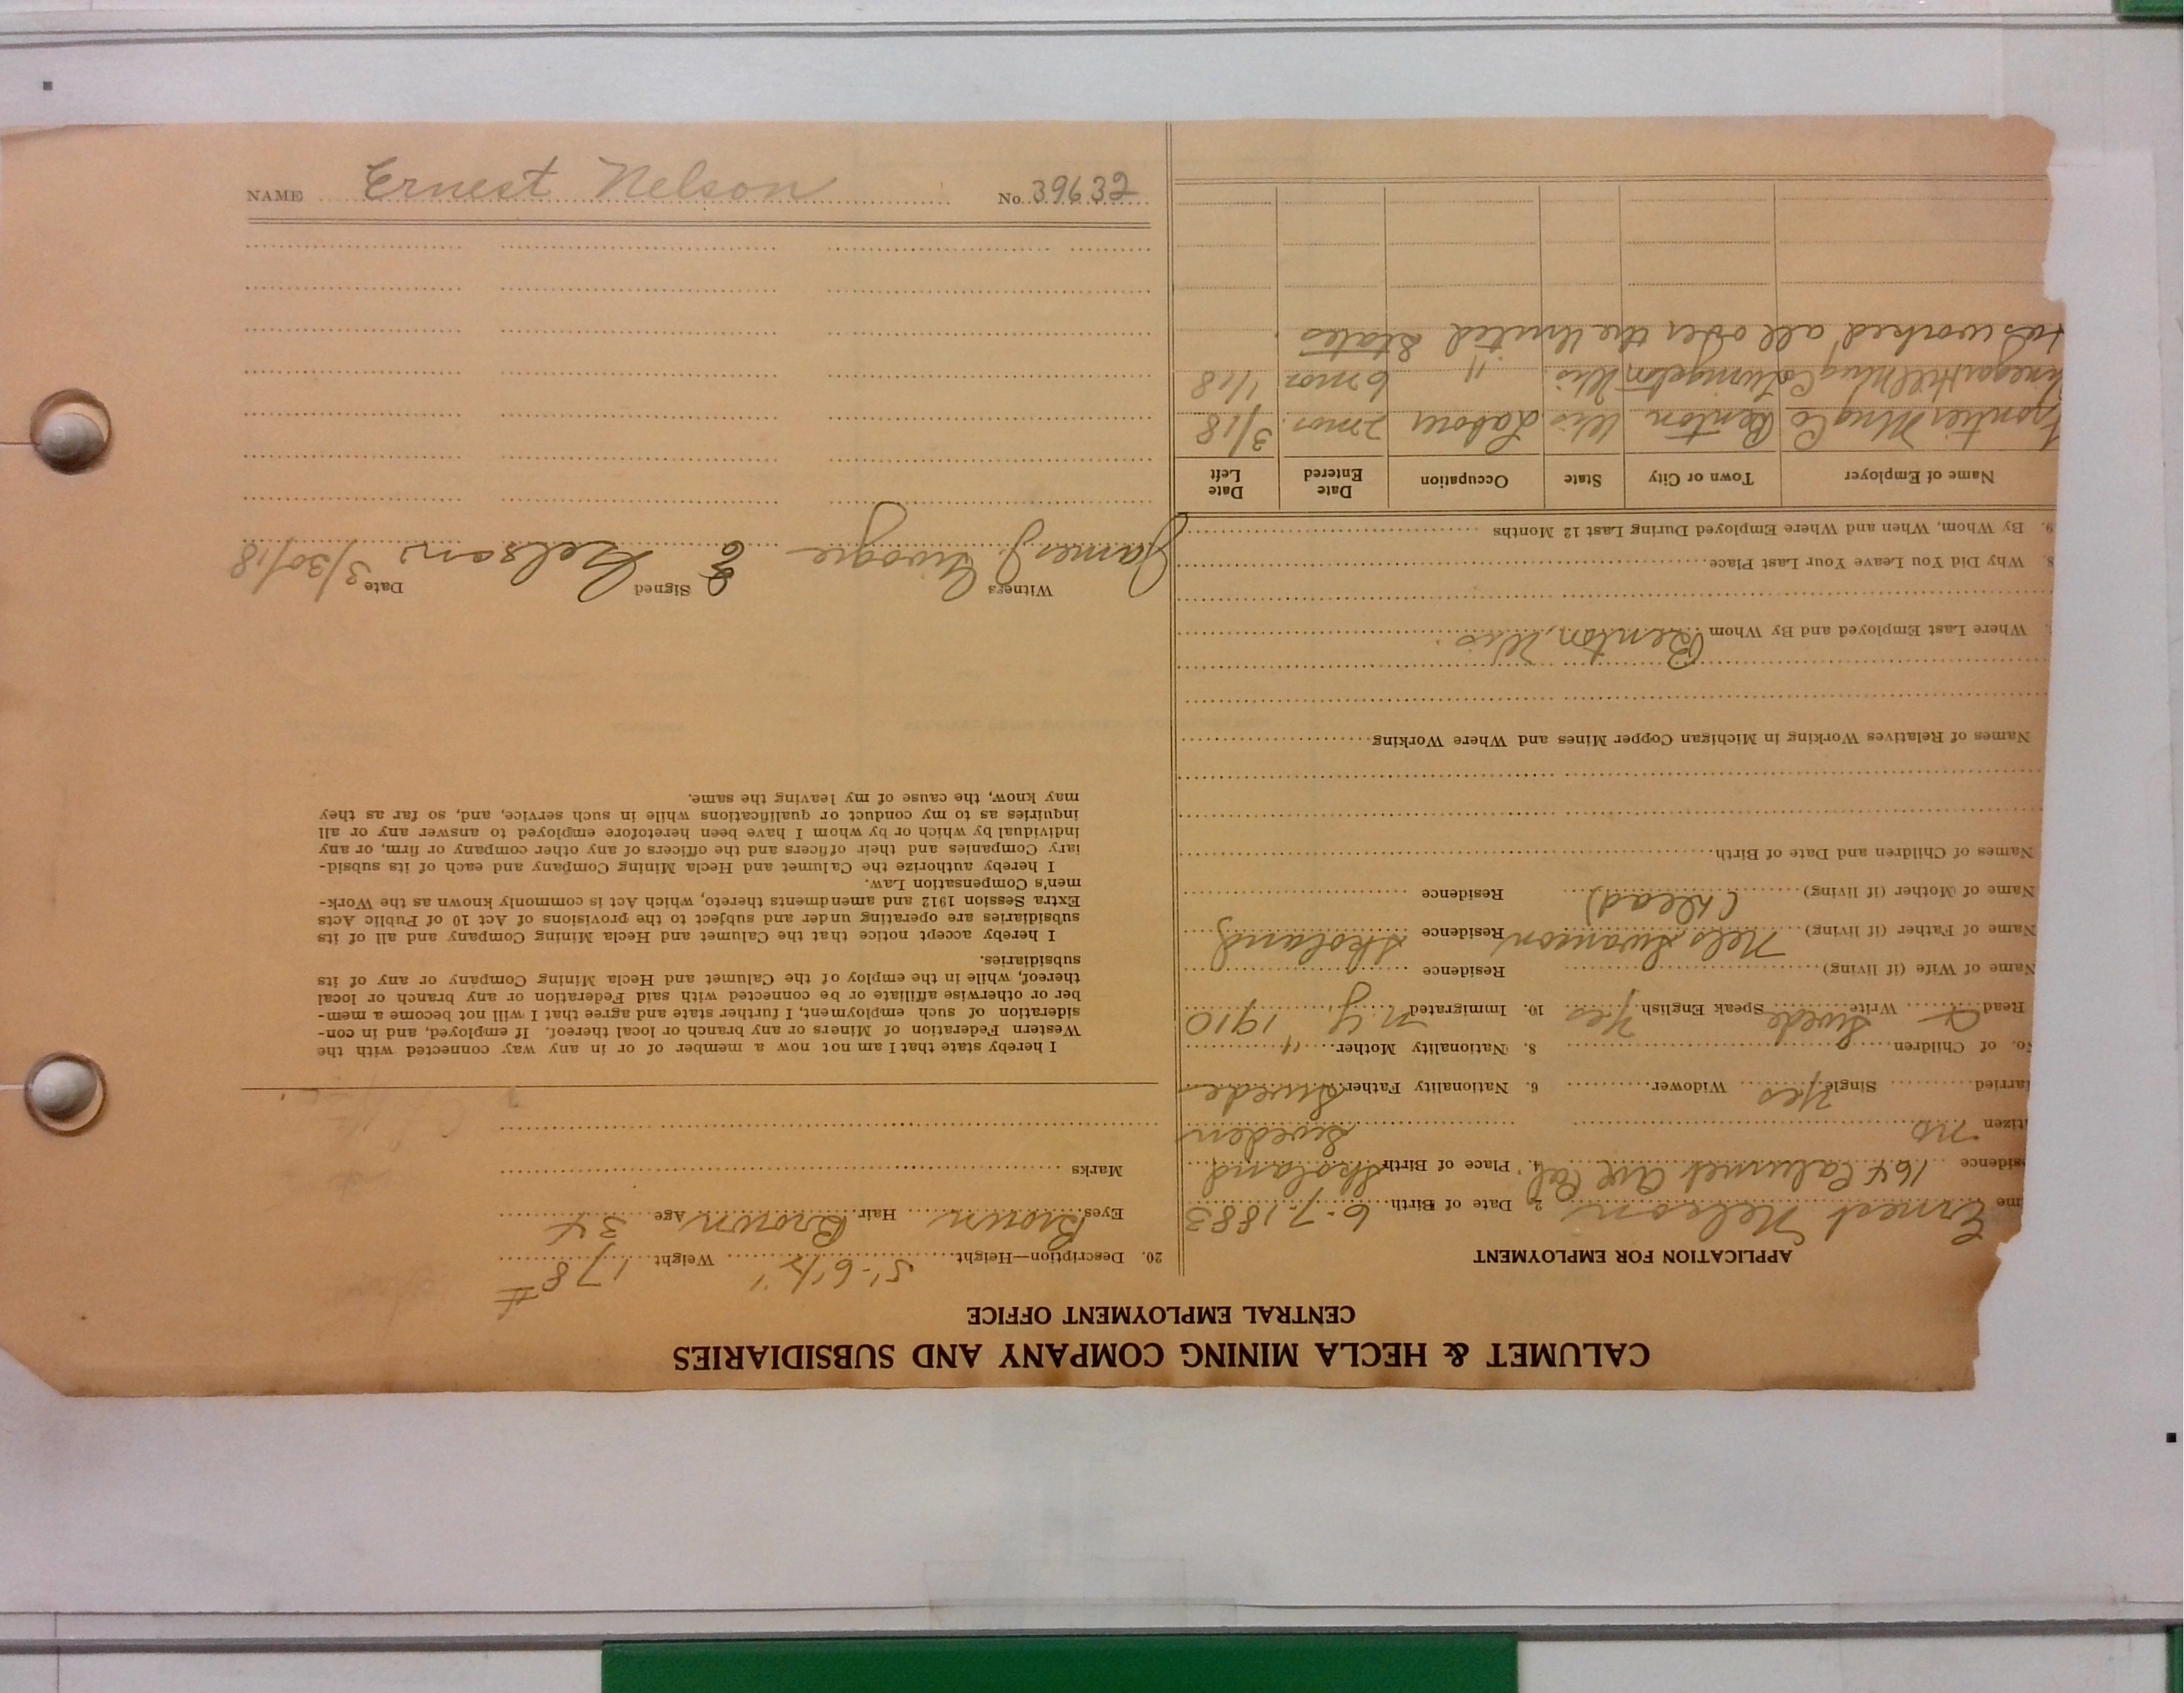 NAME Ernest Nelson No. 39632
CALUMET & HECLA MINING COMPANY AND SUBSIDIARIES
CENTRAL EMPLOYMENT OFFICE
APPLICATION FOR EMPLOYMENT
me Ernest Nelson 2. Date of Birth 6-7-1883
sidence 164 Calumet Ave Cal. 4. Place of Birth Skoland
itizen no Sweden
arried Single Yes Widower 6. Nationality Father Swede
No. of Children 8. Nationality Mother "
Read Write Swede Speak English Yes 10. Immigrated N.Y. 1910
Name of Wife (if living) Residence
Name of Father (if living) Nels Swanson Residence Skoland
Name of Mother (if living) (Dead) Residence
Names of Children and Date of Birth
Names of Relatives Working in Michigan Copper Mines and Where Working
Where Last Employed and By Whom Benton, Wis.
8. Why Did You Leave Your Last Place
9. By Whom, When and Where Employed During Last 12 Months
Name of Employer Town or City State Occupation Date Entered Date Left
Frontier Mng Co Benton Wis Labour 2 mos. 3/18
Vinegar Hill Mng Co Livingston Wis. " 6 mos 1/18
Has worked all over the United States.
20. Description—Height 5'-6 1/2" Weight 178#
Eyes Brown Hair Brown Age 34
Marks
I hereby state that I am not now a member of or in any way connected with the
Western Federation of Miners or any branch or local thereof. If employed, and in con-
sideration of such employment, I further state and agree that I will not become a mem-
ber or otherwise affiliate or be connected with said Federation or any branch or local
thereof, while in the employ of the Calumet and Hecla Mining Company or any of its
subsidiaries.
I hereby accept notice that the Calumet and Hecla Mining Company and all of its
subsidiaries are operating under and subject to the provisions of Act 10 of Public Acts
Extra Session 1912 and amendments thereto, which Act is commonly known as the Work-
men's Compensation Law.
I hereby authorize the Calumet and Hecla Mining Company and each of its subsid-
iary Companies and their officers and the officers of any other company or firm, or any
individual by which or by whom I have been heretofore employed to answer any or all
inquiries as to my conduct or qualifications while in such service, and, so far as they
may know, the cause of my leaving the same.
Witness James J. Signed E Nelson Date 3/30/18